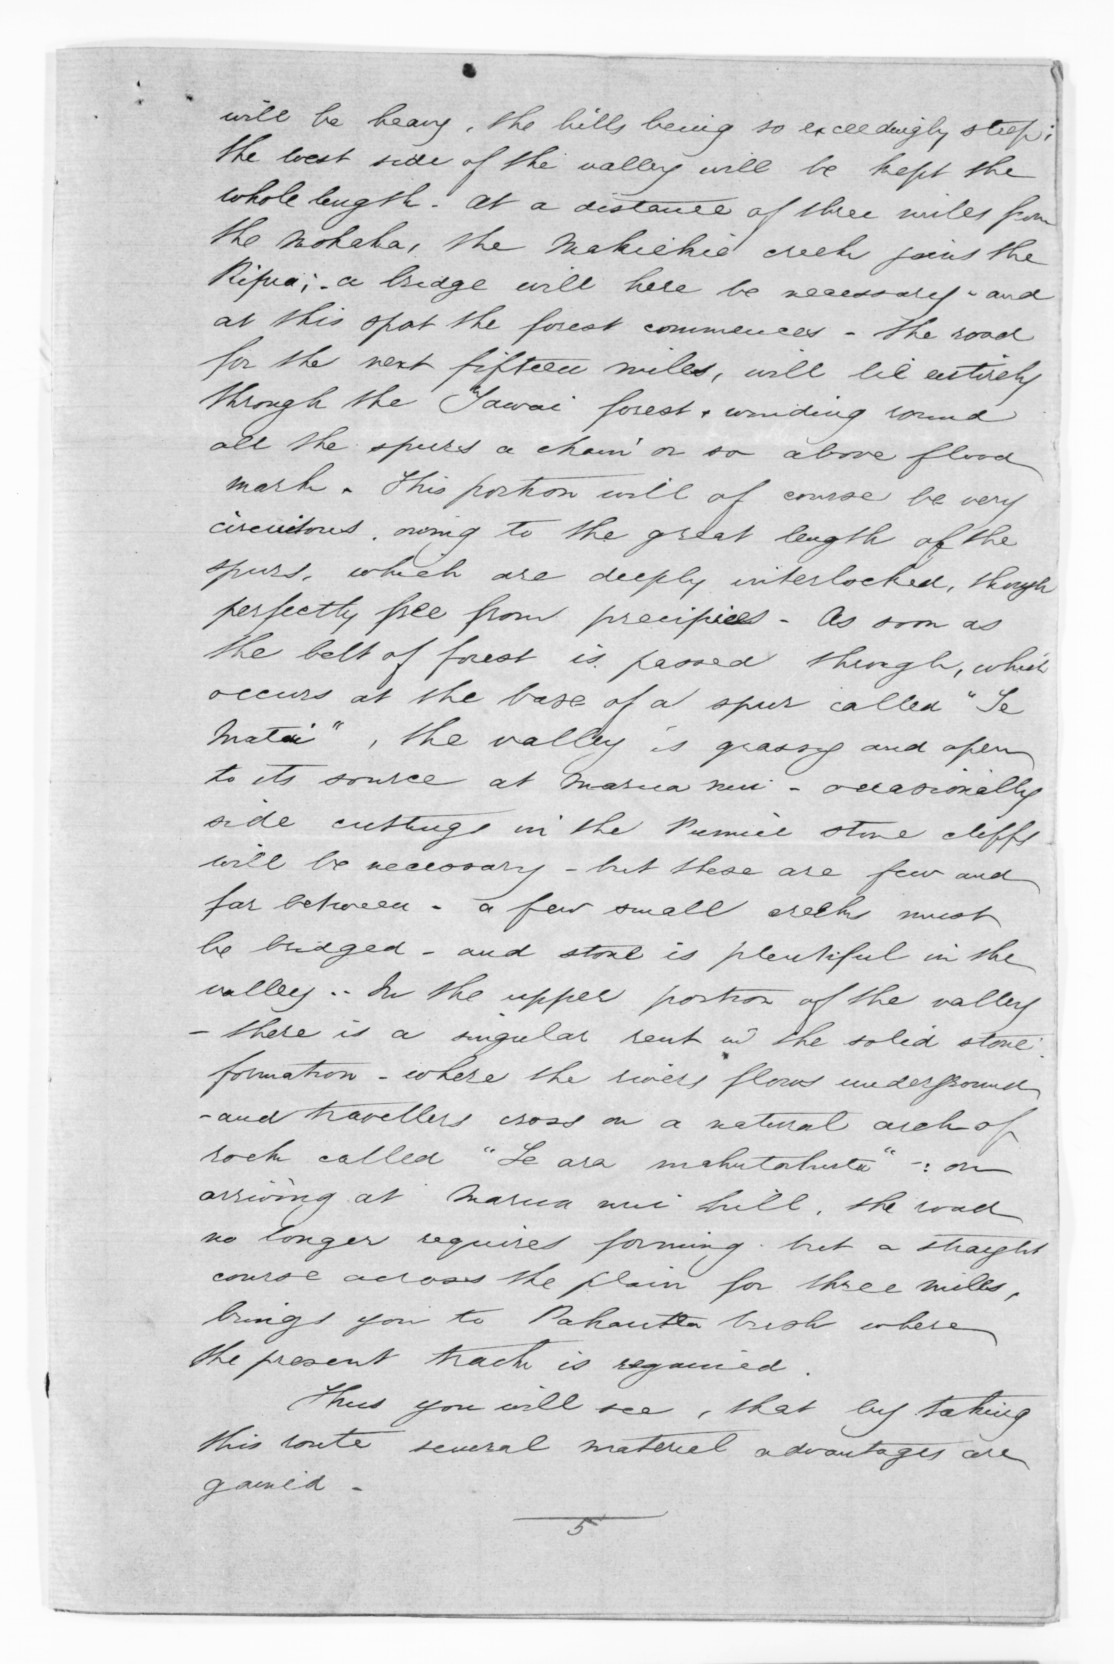 will be heavy, the hills being so exceedingly steep;
the west side of the valley will be kept the
whole length. At a distance of three miles from
the Mohaka, the Makiekie creek joins the
Ripia; - a bridge will here be necessary - and
at this spot the forest commences - The road
for the next fifteen miles, will lie entirely
through the Tawai forest, winding round
all the spurs a chain or so above flood
mark. This portion will of course be very
circuitous, owing to the great length of the
spurs, which are deeply interlocked, though
perfectly free from precipices - As soon as
the belt of forest is passed through, which
occurs at the base of a spur called "Te
Matai", the valley is grassy and open
to its source at Marua nui - occasionally
side cuttings in the Pumice stone cliffs
will be necessary - but these are few and
far between - a few small creeks must
be bridged - and stone is plentiful in the
valley -. In the upper portion of the valley
- there is a singular rent in the solid stone
formation - where the rivers flows underground
- and travellers cross on a natural arch of
rock called "Te ara" -: on
arriving at Marua nui hill, the road
no longer requires forming but a straight
course across the plain for three miles,
brings you to bush where
the present track is regained.
Thus you will see, that by taking
this route several material advantages are
gained -
5